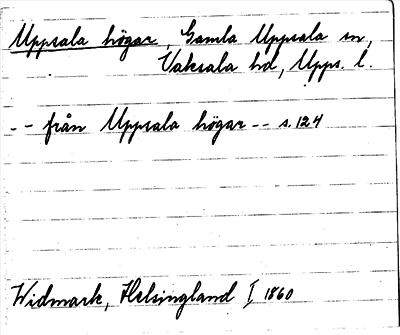 Uppsala högar, Gamla Uppsala sn,
Vaksala hd, Upps. l.
-- från Uppsala högar -- s. 124
Widmark, Helsingland I 1860